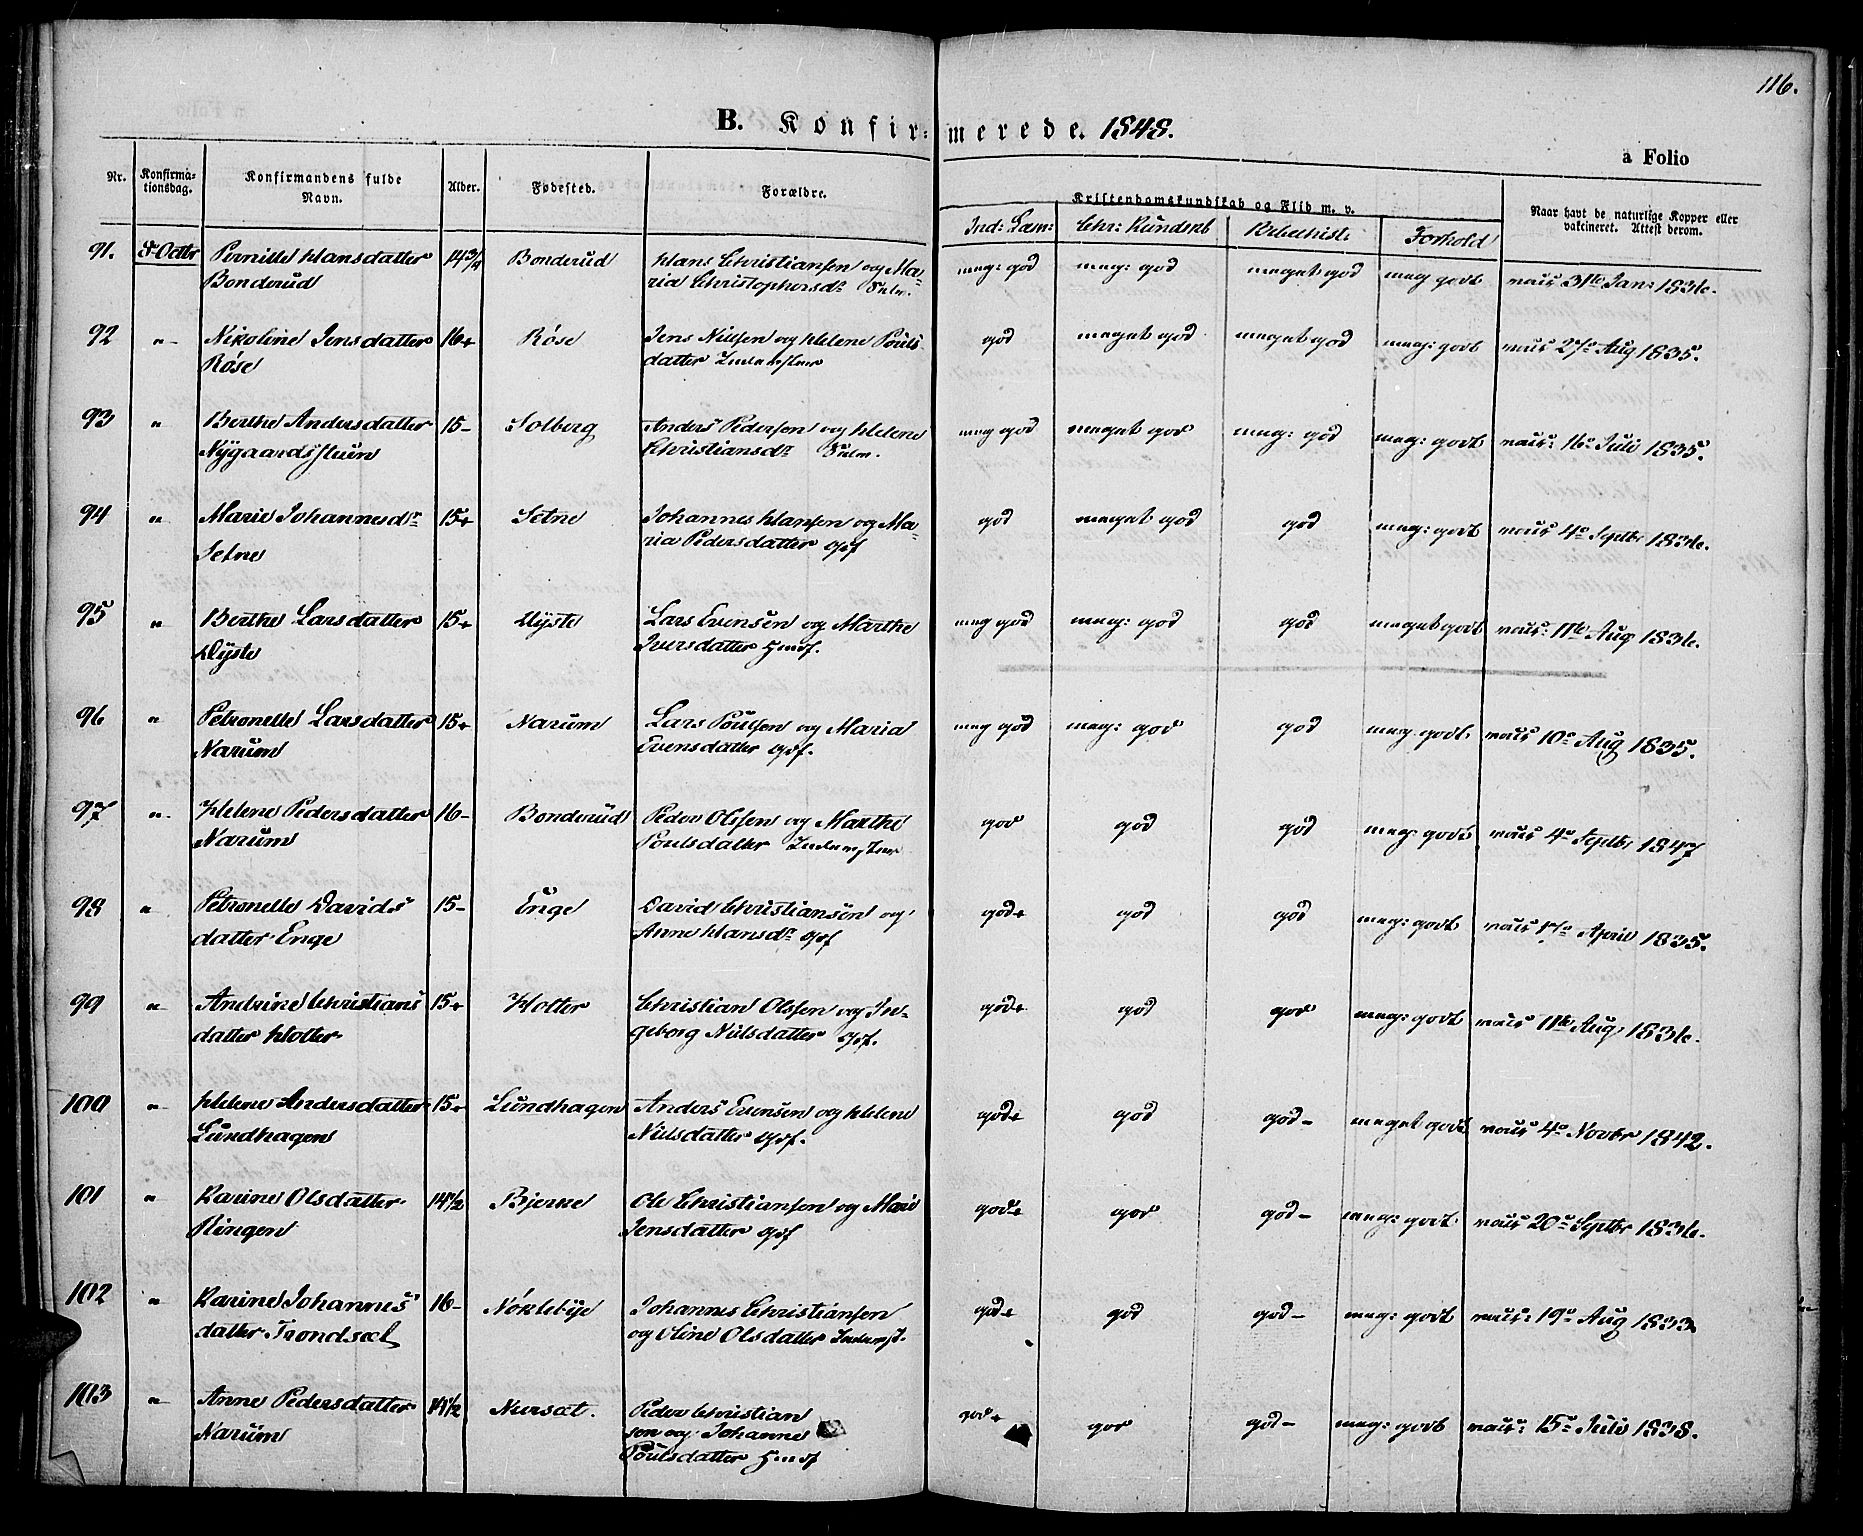 116.
B. Konfirmerede. 1848.
a Folio
Nr. Konfirmationsdag. Konfirmandens fulde Navn. Alder. Fødested. Forældre. Kristendomskundskab og Flid m. v. Naar havt de naturlige Kopper eller vakcineret. Attest derom.
Chr: Kundsk Forhold
91. 8 Octbr Pernille Hansdatter 14 3/4 Bonderud Hans Christiansen og Ma- meg: god meg: god meget god meg godt vaus 31te Jan: 1836.
Bonderud ria Christophersdr
92 " Nikoline Jensdatter 16+ Røse Jens Nilsen og Helene Pouls god meget god meget god meg: godt vaus 27de Aug 1835.
Røse datter
93 " Berthe Andersdatter 15- Solberg Anders Pedersen og Helene meg god meget god meg: god meg: godt vaus: 16de Juli 1835.
Nygaardsstuen Christiansdr
94 " Marie Johannesdr 15+ Setne Johannes Hansen og Ma- god meget god god meg: godt vaus 4de Septbr 1836.
Setne ria Pedersdatter Gdf
95 " Berthe Larsdatter 15+ Dyste Lars Evensen og Marthe meg god meg: god god meget godt vaus: 11te Aug 1836.
Dyste Iversdatter Hmdf.
96 " Petronelle Larsdatter 15+ Narum Lars Poulsen og Maria meg god meg: god god meg godt vaus 10de Aug 1835.
Narum Evensdatter Gdf.
97 " Helene Pedersdatter 16- Bonderud Peder Olsen og Marthe god god god meg: godt vaus 4de Septbr 1847
Narum Poulsdatter
98 " Petronelle Davids 15- Enge David Christiansen og god+ god god meg: godt vaus 17de April 1835.
datter Enge Anne Hansdr Gdf
99 " Andrine Christians 15+ Holter Christian Olsen og In- god+ god god meg: godt vaus 11te Aug 1836.
datter Holter geborg Nilsdatter Gdf.
100 " Helene Andersdatter 15+ Lundhagen Anders Evensen og Helene god+ god god- meget godt vaus 4de Novbr 1842.
Lundhagen Nielsdatter Gdf.
101 " Karine Olsdatter 14 1/2 Bjerke Ole Christiansen og Mari god+ god god- meg: godt vaus 20de Septbr 1836.
Ringen Jensdatter Gdf
102 " Karine Johannes 16- Nøklebye Johannes Christiansen god+ god god- meg: godt vaus: 19de Aug 1833
datter Trondsæt og Oline Olsdatter
103 " Anne Pedersdatter 14 1/2 Nersæt. Peder Christian god+ god god- meg: godt vaus: 15de Julii 1838.
Narum sen og Johanne
Poulsdatter Hmdf